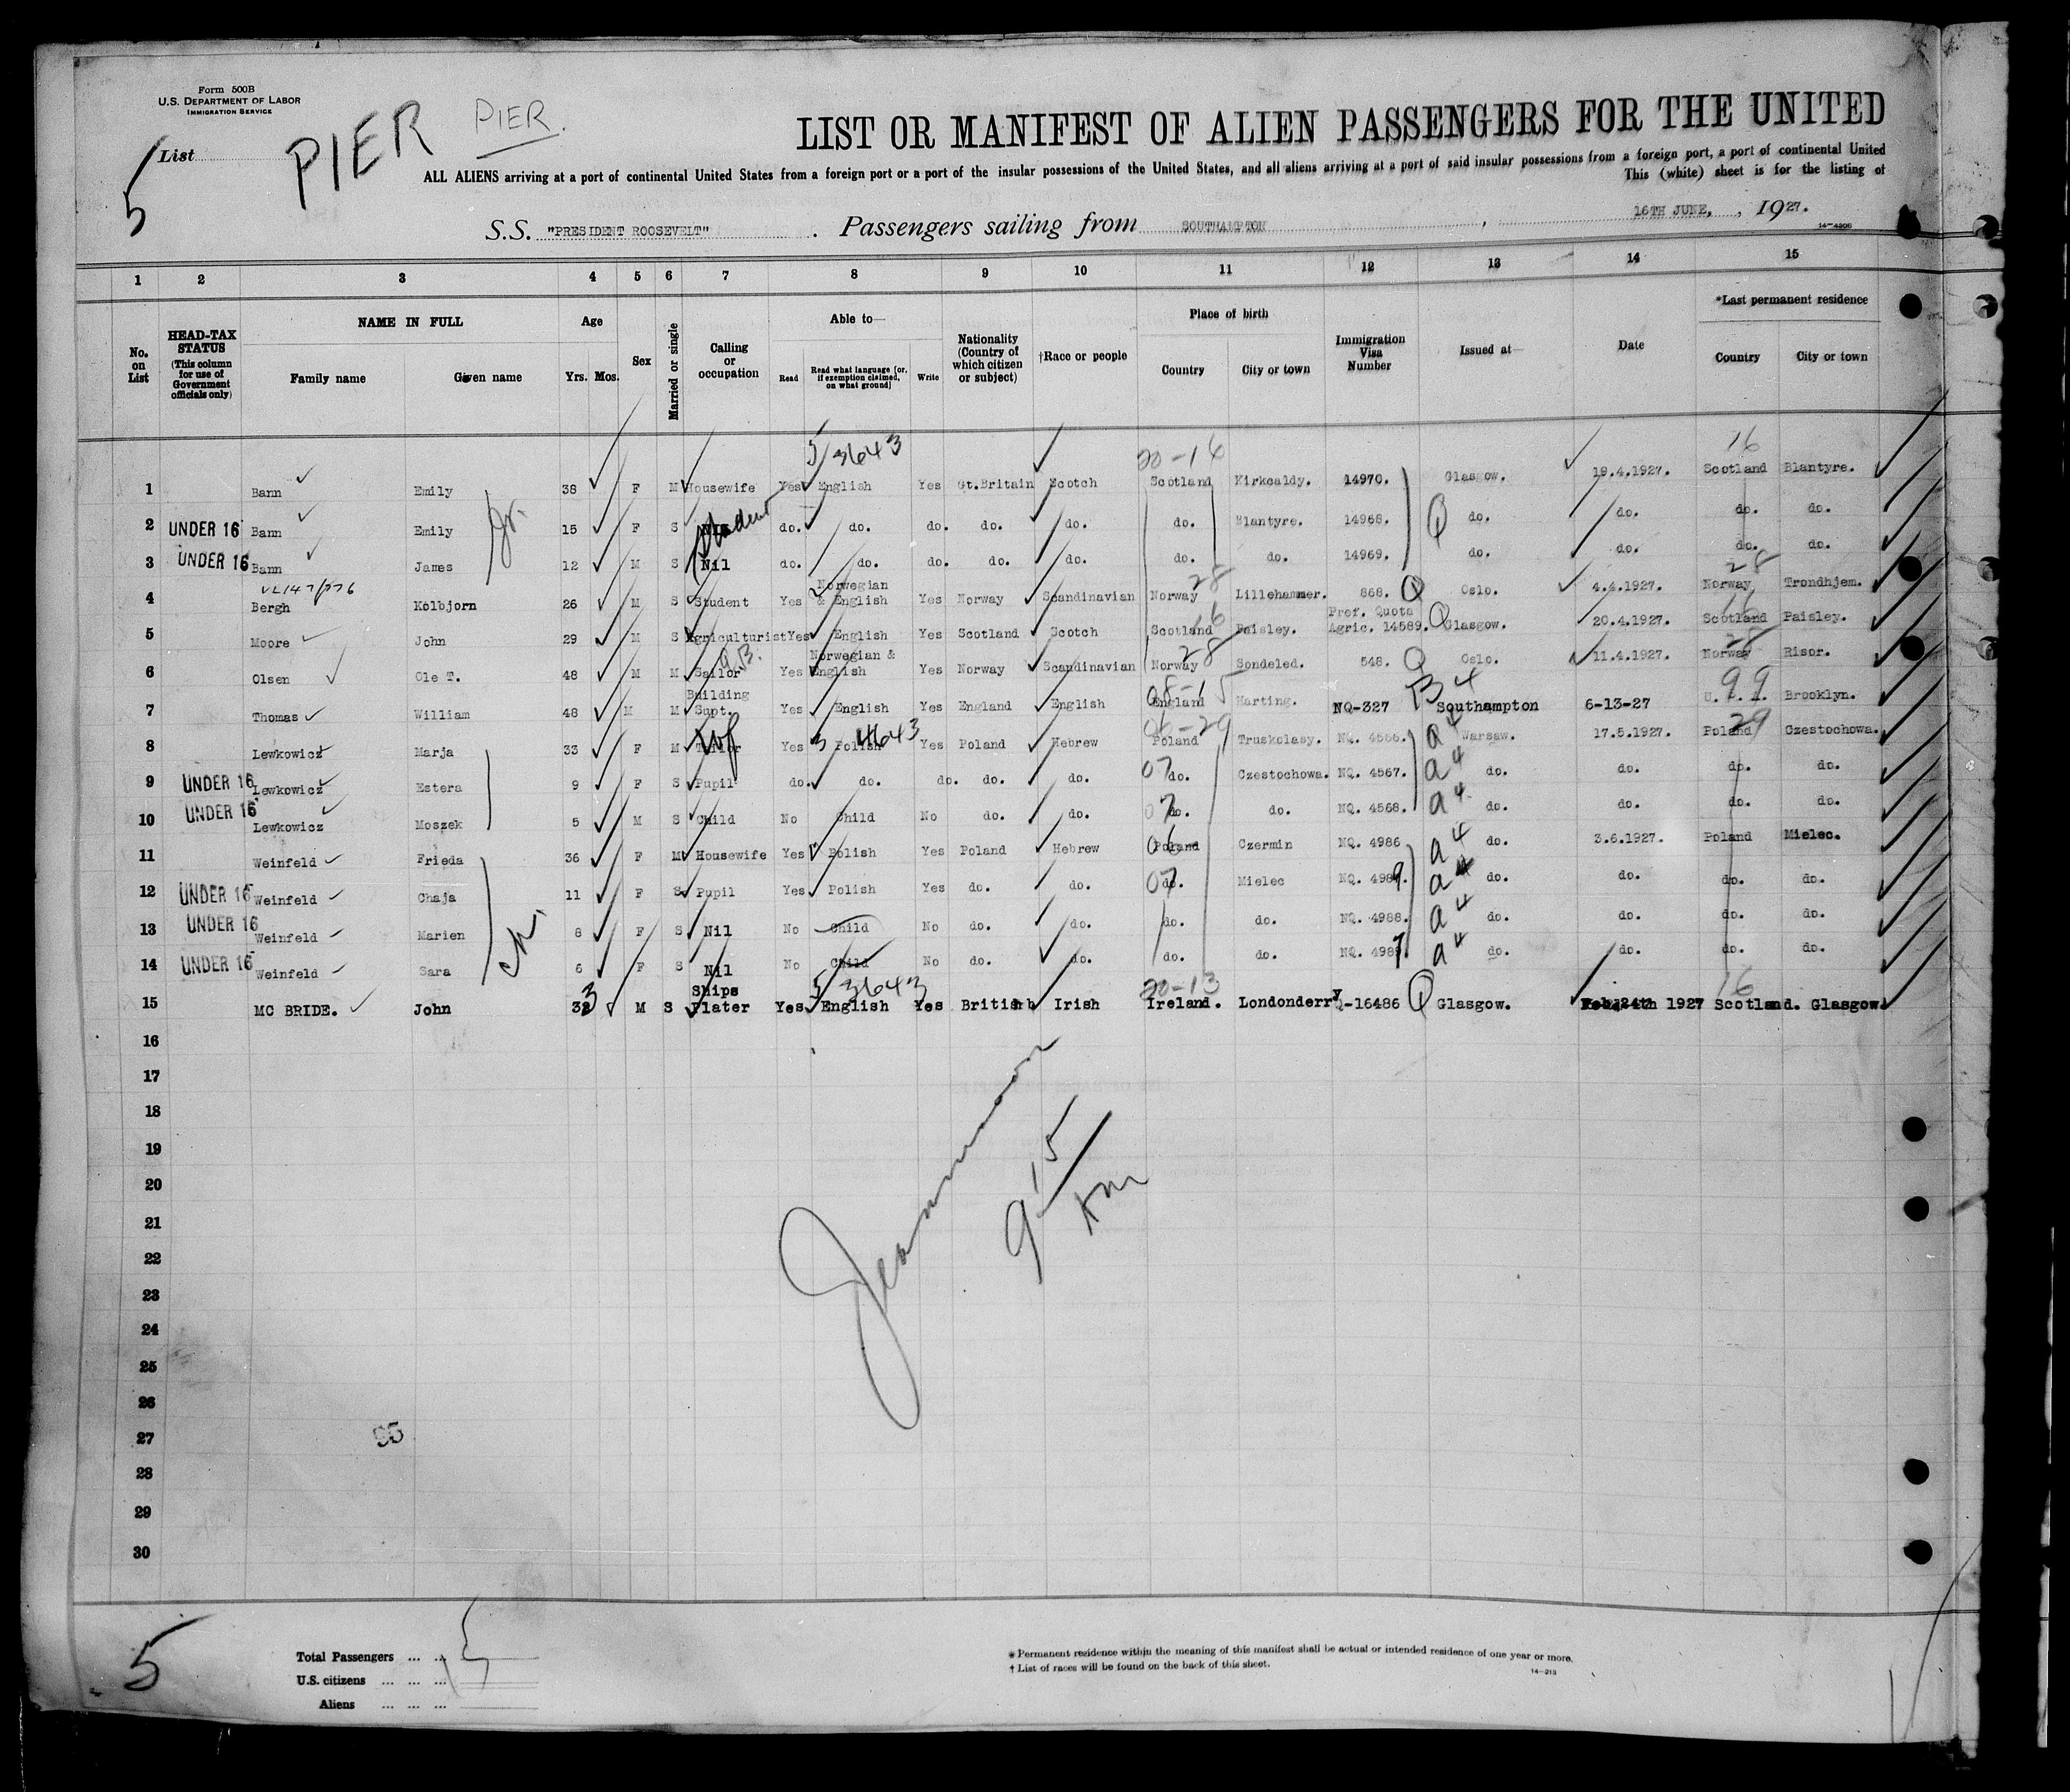 Form 500B
U.S. DEPARTMENT OF LABOR
IMMIGRATION SERVICE
5 List
PIER PIER.
LIST OR MANIFEST OF ALIEN PASSENGERS FOR THE UNITED
ALL ALIENS arriving at a port of continental United States from a foreign port or a port of the insular possessions of the United States, and all aliens arriving at a port of said insular possessions from a foreign port, a port of continental United
This (white) sheet is for the listing of
S.S. "PRESIDENT ROOSEVELT" . Passengers sailing from SOUTHAMPTON , 16TH JUNE, , 1927.
14-4306
1 2 3 4 5 6 7 8 9 10 11 12 13 14 15
No. on List
HEAD-TAX STATUS (This column for use of Government officials only)
NAME IN FULL
Family name Given name
Age
Yrs. Mos.
Sex
Married or single
Calling or occupation
Able to—
Read
Read what language [or, if exemption claimed, on what ground]
Write
Nationality (Country of which citizen or subject)
†Race or people
Place of birth
Country City or town
Immigration Visa Number
Issued at—
Date
*Last permanent residence
Country City or town
5/3643 20-16 16
1 Bann Emily 38 F M Housewife Yes English Yes Gt.Britain Scotch Scotland Kirkcaldy. 14970. Glasgow. 19.4.1927. Scotland Blantyre.
2 UNDER 16 Bann Emily Jr. 15 F S Student do. do. do. do. do. do. Blantyre. 14968. Q do. do. do. do.
3 UNDER 16 Bann James 12 M S Nil do. do. do. do. do. do. do. 14969. do. do. do. do.
28 28
4 Bergh Kolbjorn 26 M S Student Yes Norwegian & English Yes Norway Scandinavian Norway Lillehammer. 868. Q Oslo. 4.4.1927. Norway Trondhjem.
16 16
5 Moore John 29 M S Agriculturist Yes English Yes Scotland Scotch Scotland Paisley. Pref. Quota Agric. 14589. Q Glasgow. 20.4.1927. Scotland Paisley.
28 28
6 Olsen Ole T. 48 M M Sailor Yes Norwegian & English Yes Norway Scandinavian Norway Sondeled. 548. Q Oslo. 11.4.1927. Norway Risor.
08-15 B4 99
7 Thomas William 48 M M Building Supt. Yes English Yes England English England Harting. NQ-327 Southampton 6-13-27 U.S.A. Brooklyn.
29
8 Lewkowicz Marja 33 F M Wf Yes Polish Yes Poland Hebrew Poland Truskolasy. NQ. 4566. a4 Warsaw. 17.5.1927. Poland Czestochowa.
9 UNDER 16 Lewkowicz Estera 9 F S Pupil do. do. do. do. do. 07 do. Czestochowa. NQ. 4567. a4 do. do. do. do.
10 UNDER 16 Lewkowicz Moszek 5 M S Child No Child No do. do. 07 do. do. NQ. 4568. a4 do. do. do. do.
11 Weinfeld Frieda 36 F M Housewife Yes Polish Yes Poland Hebrew 06 Poland Czermin NQ. 4986 a4 do. 3.6.1927. Poland Mielec.
12 UNDER 16 Weinfeld Chaja 11 F S Pupil Yes Polish Yes do. do. 07 do. Mielec NQ. 4989. a4 do. do. do. do.
13 UNDER 16 Weinfeld Marien 8 F S Nil No Child No do. do. do. do. NQ. 4988. a4 do. do. do. do.
14 UNDER 16 Weinfeld Sara 6 F S Nil No Child No do. do. do. do. NQ. 4987. a4 do. do. do. do.
5 3643 20-13 16
15 MC BRIDE. John 33 M S Ships Plater Yes English Yes British Irish Ireland. Londonderry Q-16486 Q Glasgow. Feb. 24th 1927 Scotland. Glasgow.
16
17
18
19
20
21
22
23
24
25
26
27
28
29
30
9 15
95
5
Total Passengers ... ... 15
U.S. citizens ... ... ...
Aliens ... ... ...
* Permanent residence within the meaning of this manifest shall be actual or intended residence of one year or more.
† List of races will be found on the back of this sheet.
14-213